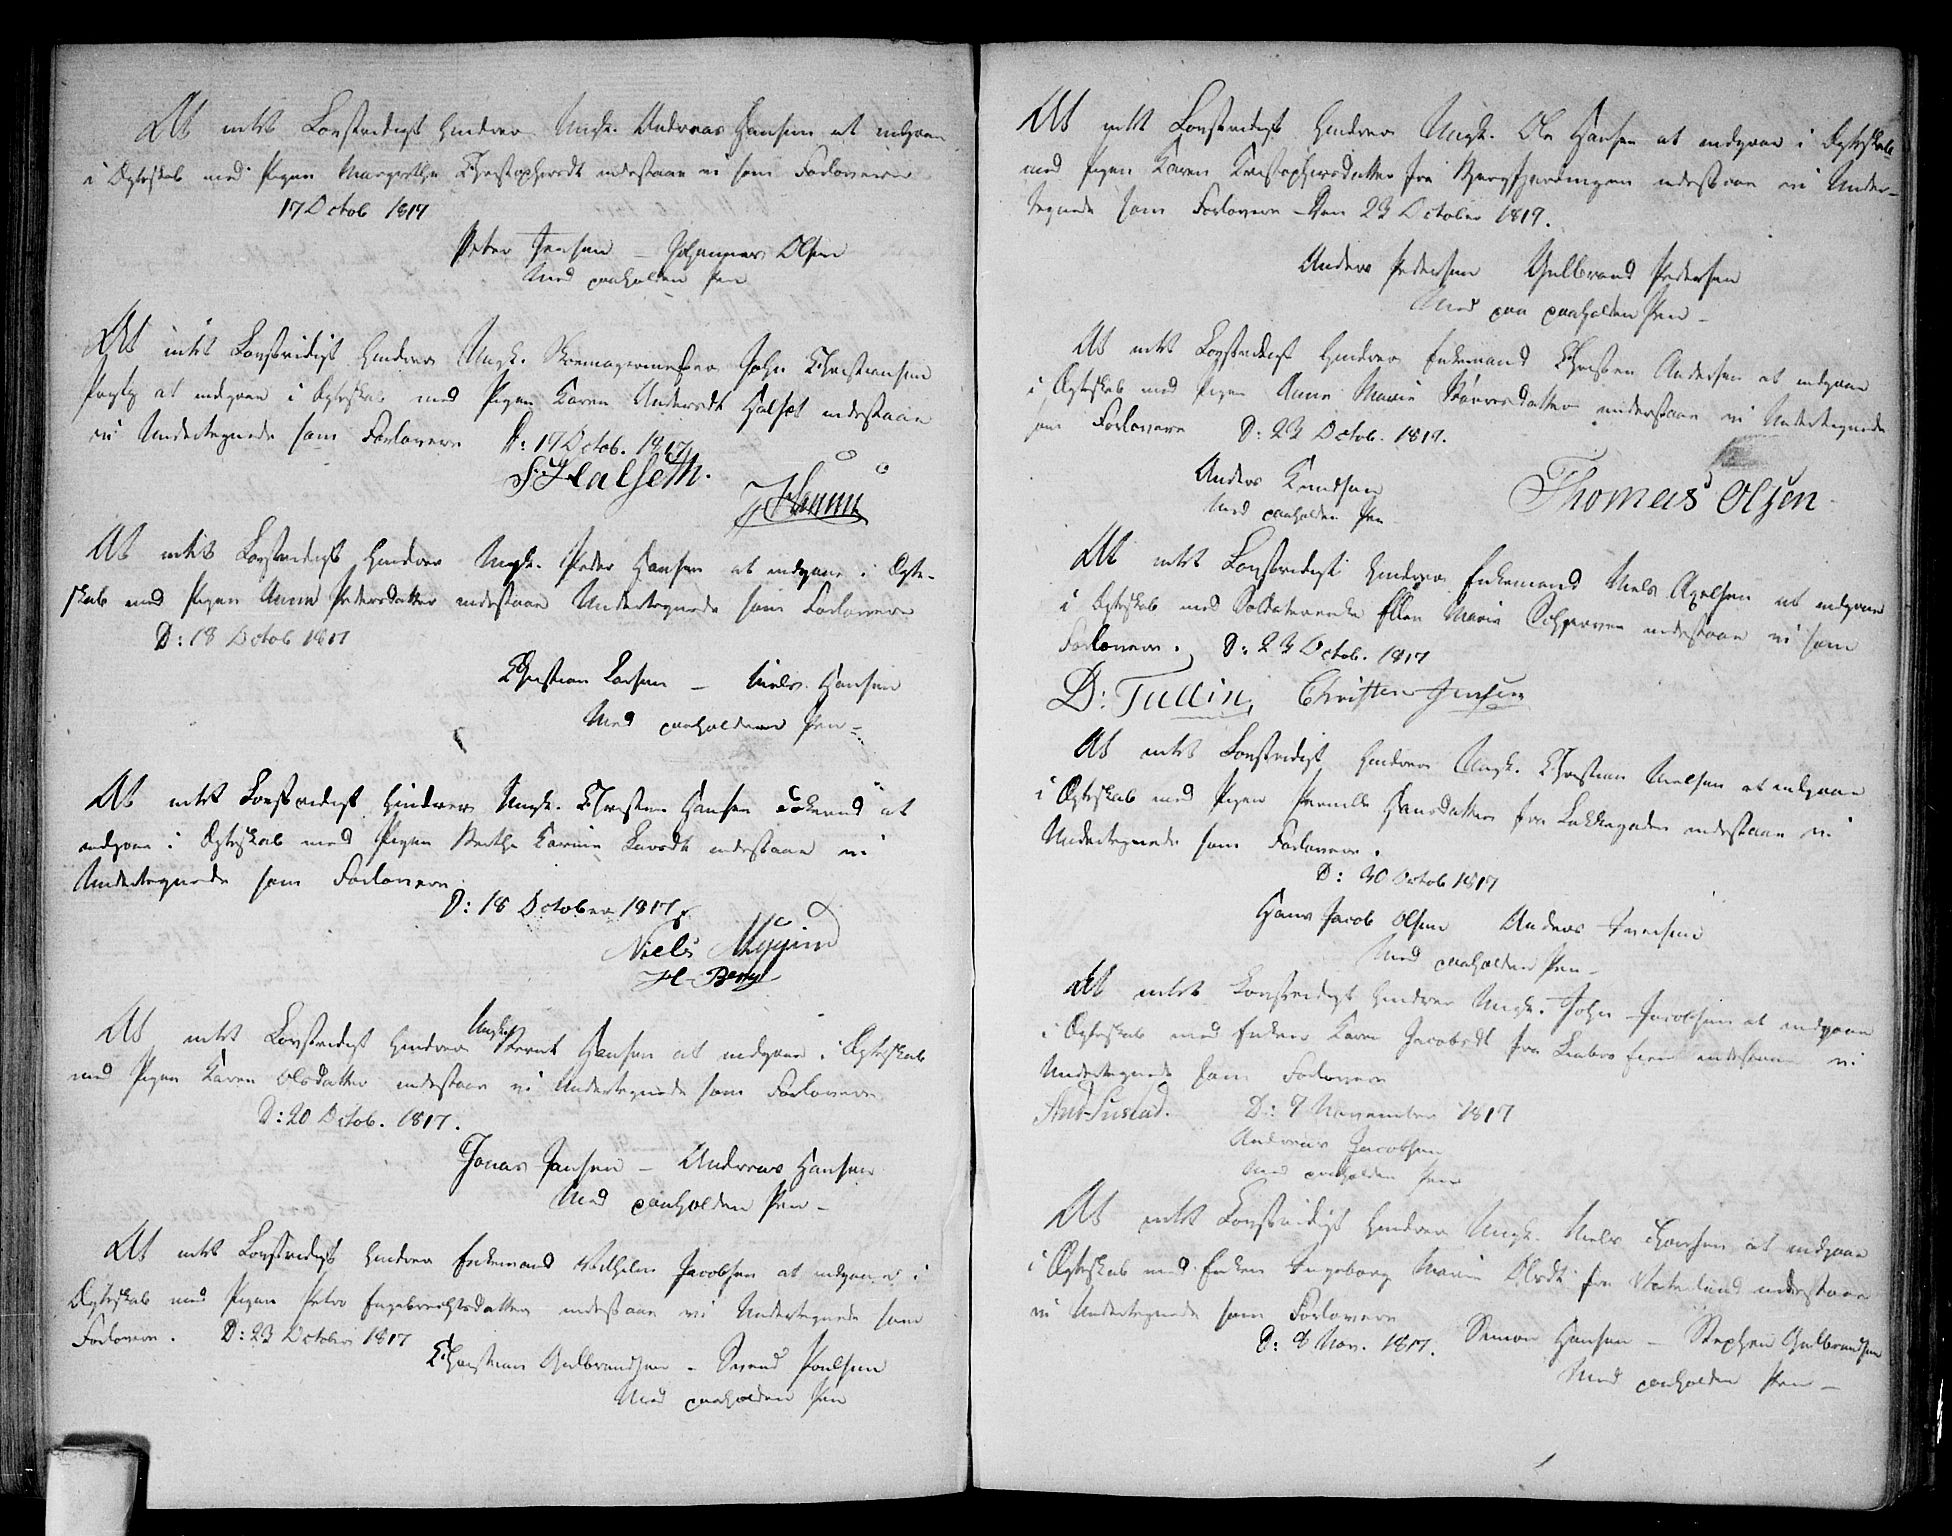 At intet Lovstridigt hindrer Ungk. Andreas Hansen at indgaae
i Ægteskab med Pigen Margrethe Christophersdt indestaae vi som Forlovere
17 Octob 1817
Peter Jensen – Johannes Olsen
Med paaholden Pen
At intet Lovstridigt hindrer Ungk. Skomagermester John Christiansen
at indgaae i Ægteskab med Pigen Karen Andersdt Halset indestaae
vi Undertegnede som Forlovere D: 17 Octob. 1817
Halseth.
At intet Lovstridigt hindrer Ungk. Peder Hansen at indgaae i Ægte-
skab med Pigen Anne Pedersdatter indestaae Undertegnede som Forlovere
D: 18 Octob 1817
Christian Larsen – Niels Hansen
Med paaholdene Pen –
At intet Lovstridigt hindrer Ungk. Christen Hansen at
indgaae i Ægteskab med Pigen Berthe Karine Larsdt indestaae vi
Undertegnede som Forlovere
D: 18 October 1817
Niels
H. Berg
At intet Lovstridigt hindrer Ungk. Bernt Hansen at indgaae i Ægteskab
med Pigen Karen Olsdatter indestaae vi Undertegnede som Forlovere
D: 20 Octob. 1817.
Jonas Jansen – Andreas Hansen
Med paaholden Pen –
At intet Lovstridigt hindrer Enkemand Wilhelm Jacobsen at indgaae i
Ægteskab med Pigen Petro Engebrechtsdatter indestaae vi Undertegnede som
Forlovere. D: 23 October 1817
Christian Gulbrandsen – Svend Poulsen
Med paaholden Pen
At intet Lovstridigt hindrer Ungk. Ole Hansen at indgaae i Ægteskab
med Pigen Karen Kristophersdatter fra indestaae vi Under-
tegnede som Forlovere Den 23 October 1817.
Anders Pedersen Gulbrand Pedersen
Med paa paaholden Pen –
At intet Lovstridigt hindrer Enkemand Christen Andersen at indgaae
i Ægteskab med Pigen Anne Marie indestaae vi Undertegnede
som Forlovere D: 23 Octob. 1817.
Anders Knudsen
Med paaholden Pen
Thomas Olsen
At intet Lovstridigt hindrer Enkemand Niels Axelsen at indgaae
i Ægteskab med Soldaterenke Ellen Marie indestaae vi som
Forlovere. D: 23 Octob. 1817
D: Tullin, Christen Jensen
At intet Lovstridigt hindrer Ungk. Christian Nielsen at indgaae
i Ægteskab med Pigen Pernille Hansdatter fra Lakkegaden indestaae vi
Undertegnede som Forlovere.
D: 30 Octob 1817
Hans Jacob Olsen Anders Iversen
Med paaholden Pen –
At intet Lovstridigt hindrer Ungk. John Jacobsen at indgaae
i Ægteskab med Enken Karen Jacobsdt fra indestaae vi
Undertegnede som Forlovere
D: 7 November 1817
Andreas Jacobsen
Med paaholden Pen
At intet Lovstridigt hindrer Ungk. Niels Hansen at indgaae
i Ægteskab med Enken Ingeborg Marie Olsdt fra Vaterland indestaae
vi Undertegnede som Forlovere
D: 8 Nov. 1817. Simon Hansen – Stephen Gulbrandsen
Med paaholden Pen –